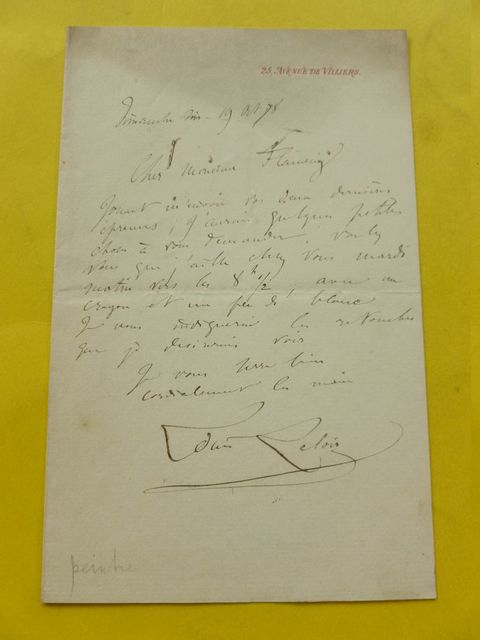 25, AVENUE DE VILLIERS.
Dimanche 19 8bre 78
Cher Monsieur Flameng
vos deux dernières
épreuves, j'aurais quelques petites
choses à vous demander. voulez
vous que j'aille chez vous mardi
matin vers les 8h 1/2, avec un
crayon et un peu de blanc
Je vous indiquerai les retouches
que je désirerais voir
Je vous serre bien
cordialement les main
Louis Leloir
peintre